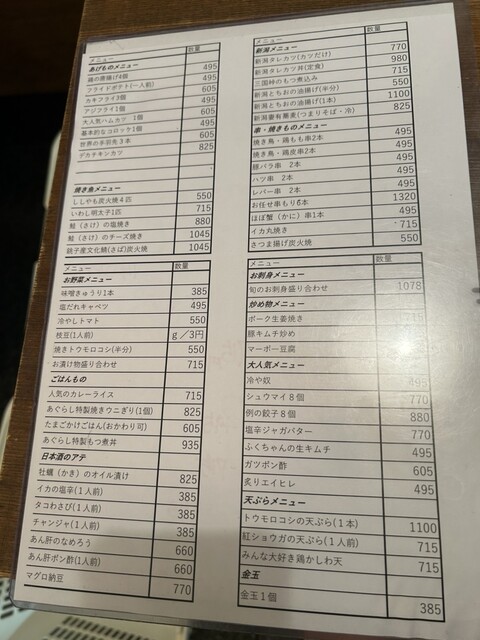 メニュー 数量
あげものメニュー
鶏の唐揚げ4個 495
フライドポテト(一人前) 495
カキフライ3個 605
アジフライ1個 495
大人気ハムカツ 1個 605
基本的なコロッケ1個 495
世界の手羽先3本 605
デカチキンカツ 825
焼き魚メニュー
ししゃも炭火焼4匹 550
いわし明太子1匹 715
鮭(さけ)の塩焼き 880
鮭(さけ)のチーズ焼き 1045
銚子産文化鯖(さば)炭火焼 1045
メニュー 数量
お野菜メニュー
味噌きゅうり1本 385
塩だれキャベツ 495
冷やしトマト 550
枝豆(1人前) g/3円
焼きトウモロコシ(半分) 550
お漬け物盛り合わせ 715
ごはんもの
人気のカレーライス 715
あぐらし特製焼きウニぎり(1個) 825
たまごかけごはん(おかわり可) 605
あぐらし特製もつ煮丼 935
日本酒のアテ
牡蠣(かき)のオイル漬け 825
イカの塩辛(1人前) 385
タコわさび(1人前) 385
チャンジャ(1人前) 385
あん肝のなめろう 660
あん肝ポン酢(1人前) 660
マグロ納豆 770
メニュー 数量
新潟メニュー
新潟タレカツ(カツだけ) 770
新潟タレカツ丼(定食) 980
三国峠のもつ煮込み 715
新潟とちおの油揚げ(半分) 550
新潟とちおの油揚げ(1本) 1100
新潟妻有蕎麦(つまりそば・冷) 825
串・焼きものメニュー
焼き鳥・鶏もも串2本 495
焼き鳥・鶏皮串2本 495
豚バラ串 2本 495
ハツ串 2本 495
レバー串 2本 495
お任せ串もり6本 1320
ほぼ蟹(かに)串1本 495
イカ丸焼き 715
さつま揚げ炭火焼 550
メニュー 数量
お刺身メニュー
旬のお刺身盛り合わせ 1078
炒め物メニュー
ポーク生姜焼き 715
豚キムチ炒め
マーボー豆腐
大人気メニュー
冷や奴 495
シュウマイ8個 770
例の餃子8個 880
塩辛ジャガバター 770
ふくちゃんの生キムチ 495
ガツポン酢 605
炙りエイヒレ 495
天ぷらメニュー
トウモロコシの天ぷら(1本) 1100
紅ショウガの天ぷら(1人前) 715
みんな大好き鶏かしわ天 715
金玉
金玉1個 385